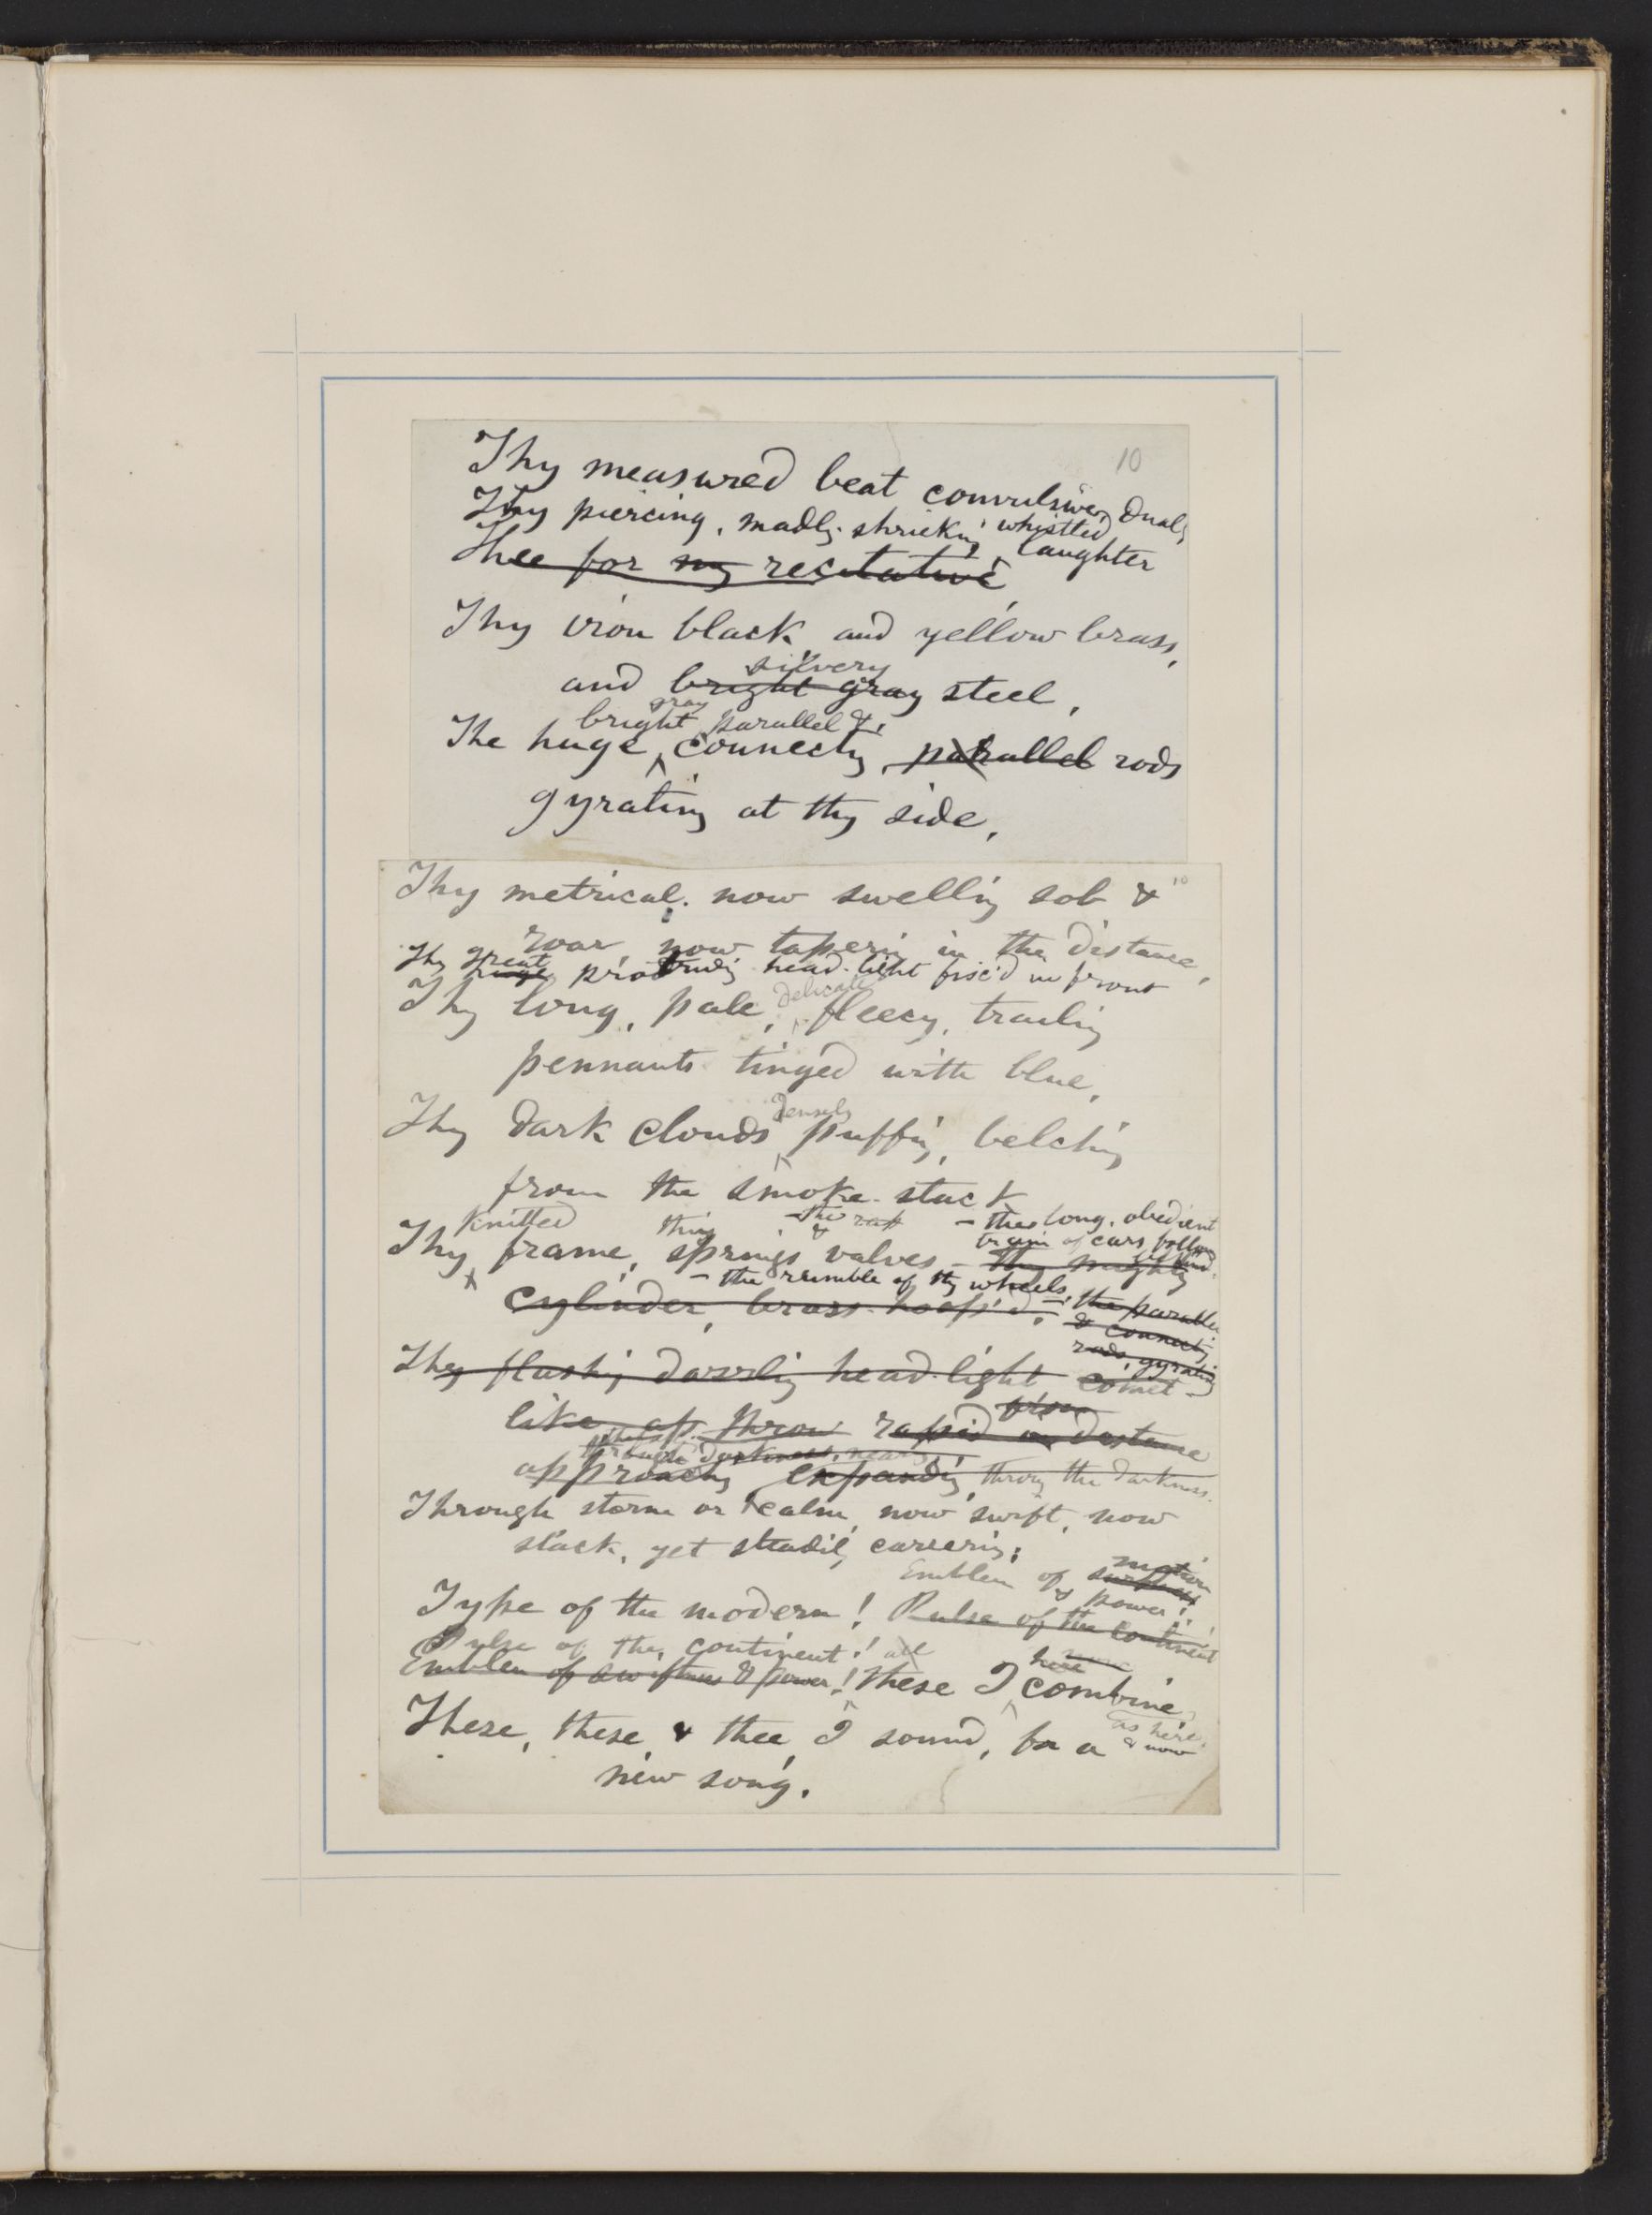 10
Thy measured beat convulsive, dual,
Thy piercing, madly-shrieking, whistled
laughter
Thee for my recitative
Thy iron black and yellow brass,
silvery
and bright gray steel,
gray
bright parallel &
The huge, connecting, parallel rods
gyrating at thy side,
Thy metrical, now swelling sob &
roar, now tapering in the distance,
great
Thy huge protruding head-light fix'd in front
delicate
Thy long, pale, fleecy, trailing
pennants tinged with blue,
densely
Thy dark clouds puffing, belching
from the smoke-stack
knitted thy & the long, obedient
train of cars following behind,
Thy frame, springs valves – thy mighty
– the rumble of thy wheels, the parallel
& connecting
rods, gyrating
cylinder, brass-hoop'd,
Thy flashing dazzling head-light comet
like rapid in distance
approaching expanding, through the darkness.
Through storm or calm, now swift, now
slack, yet steadily careering;
Emblem of motion
swiftness
& power!
Type of the modern! Pulse of the continent
Pulse of the continent! all
here
Emblem of swiftness & power! these I combine,
as here,
& now
These, these, & thee, I sound, for a
new song.